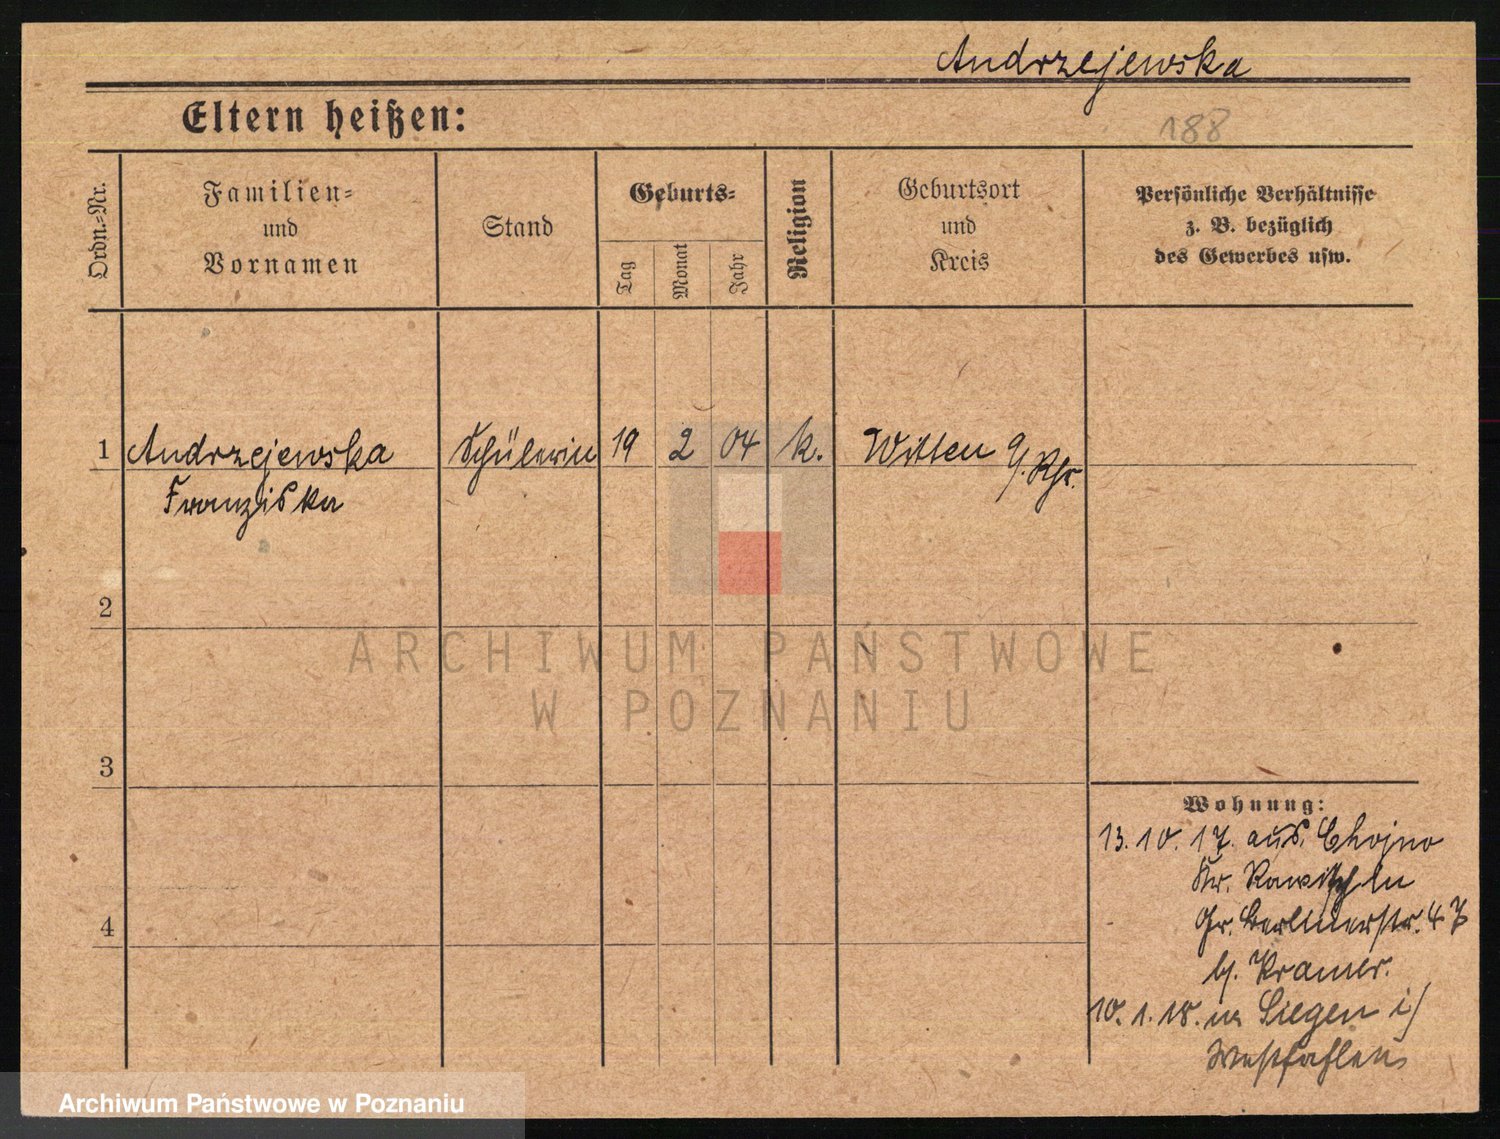 Andrzejewska
Eltern heißen:
188
Ordn.-Nr.
Familien-
und
Vornamen
Stand
Geburts-
Tag
Monat
Jahr
Religion
Geburtsort
und
Kreis
Persönliche Verhältnisse
z. B. bezüglich
des Gewerbes usw.
1 Andrzejewska Schülerin 19 2 04 k. Witten
Franziska
2
3
4
Wohnung:
13. 10. 17. aus Chojno
Kr. Rawitsch in
Gr. Berlinerstr. 47
b. Kramer.
10. 1. 18. n. Siegen i/
Westfahlen
ARCHIWUM PAŃSTWOWE
W POZNANIU
Archiwum Państwowe w Poznaniu